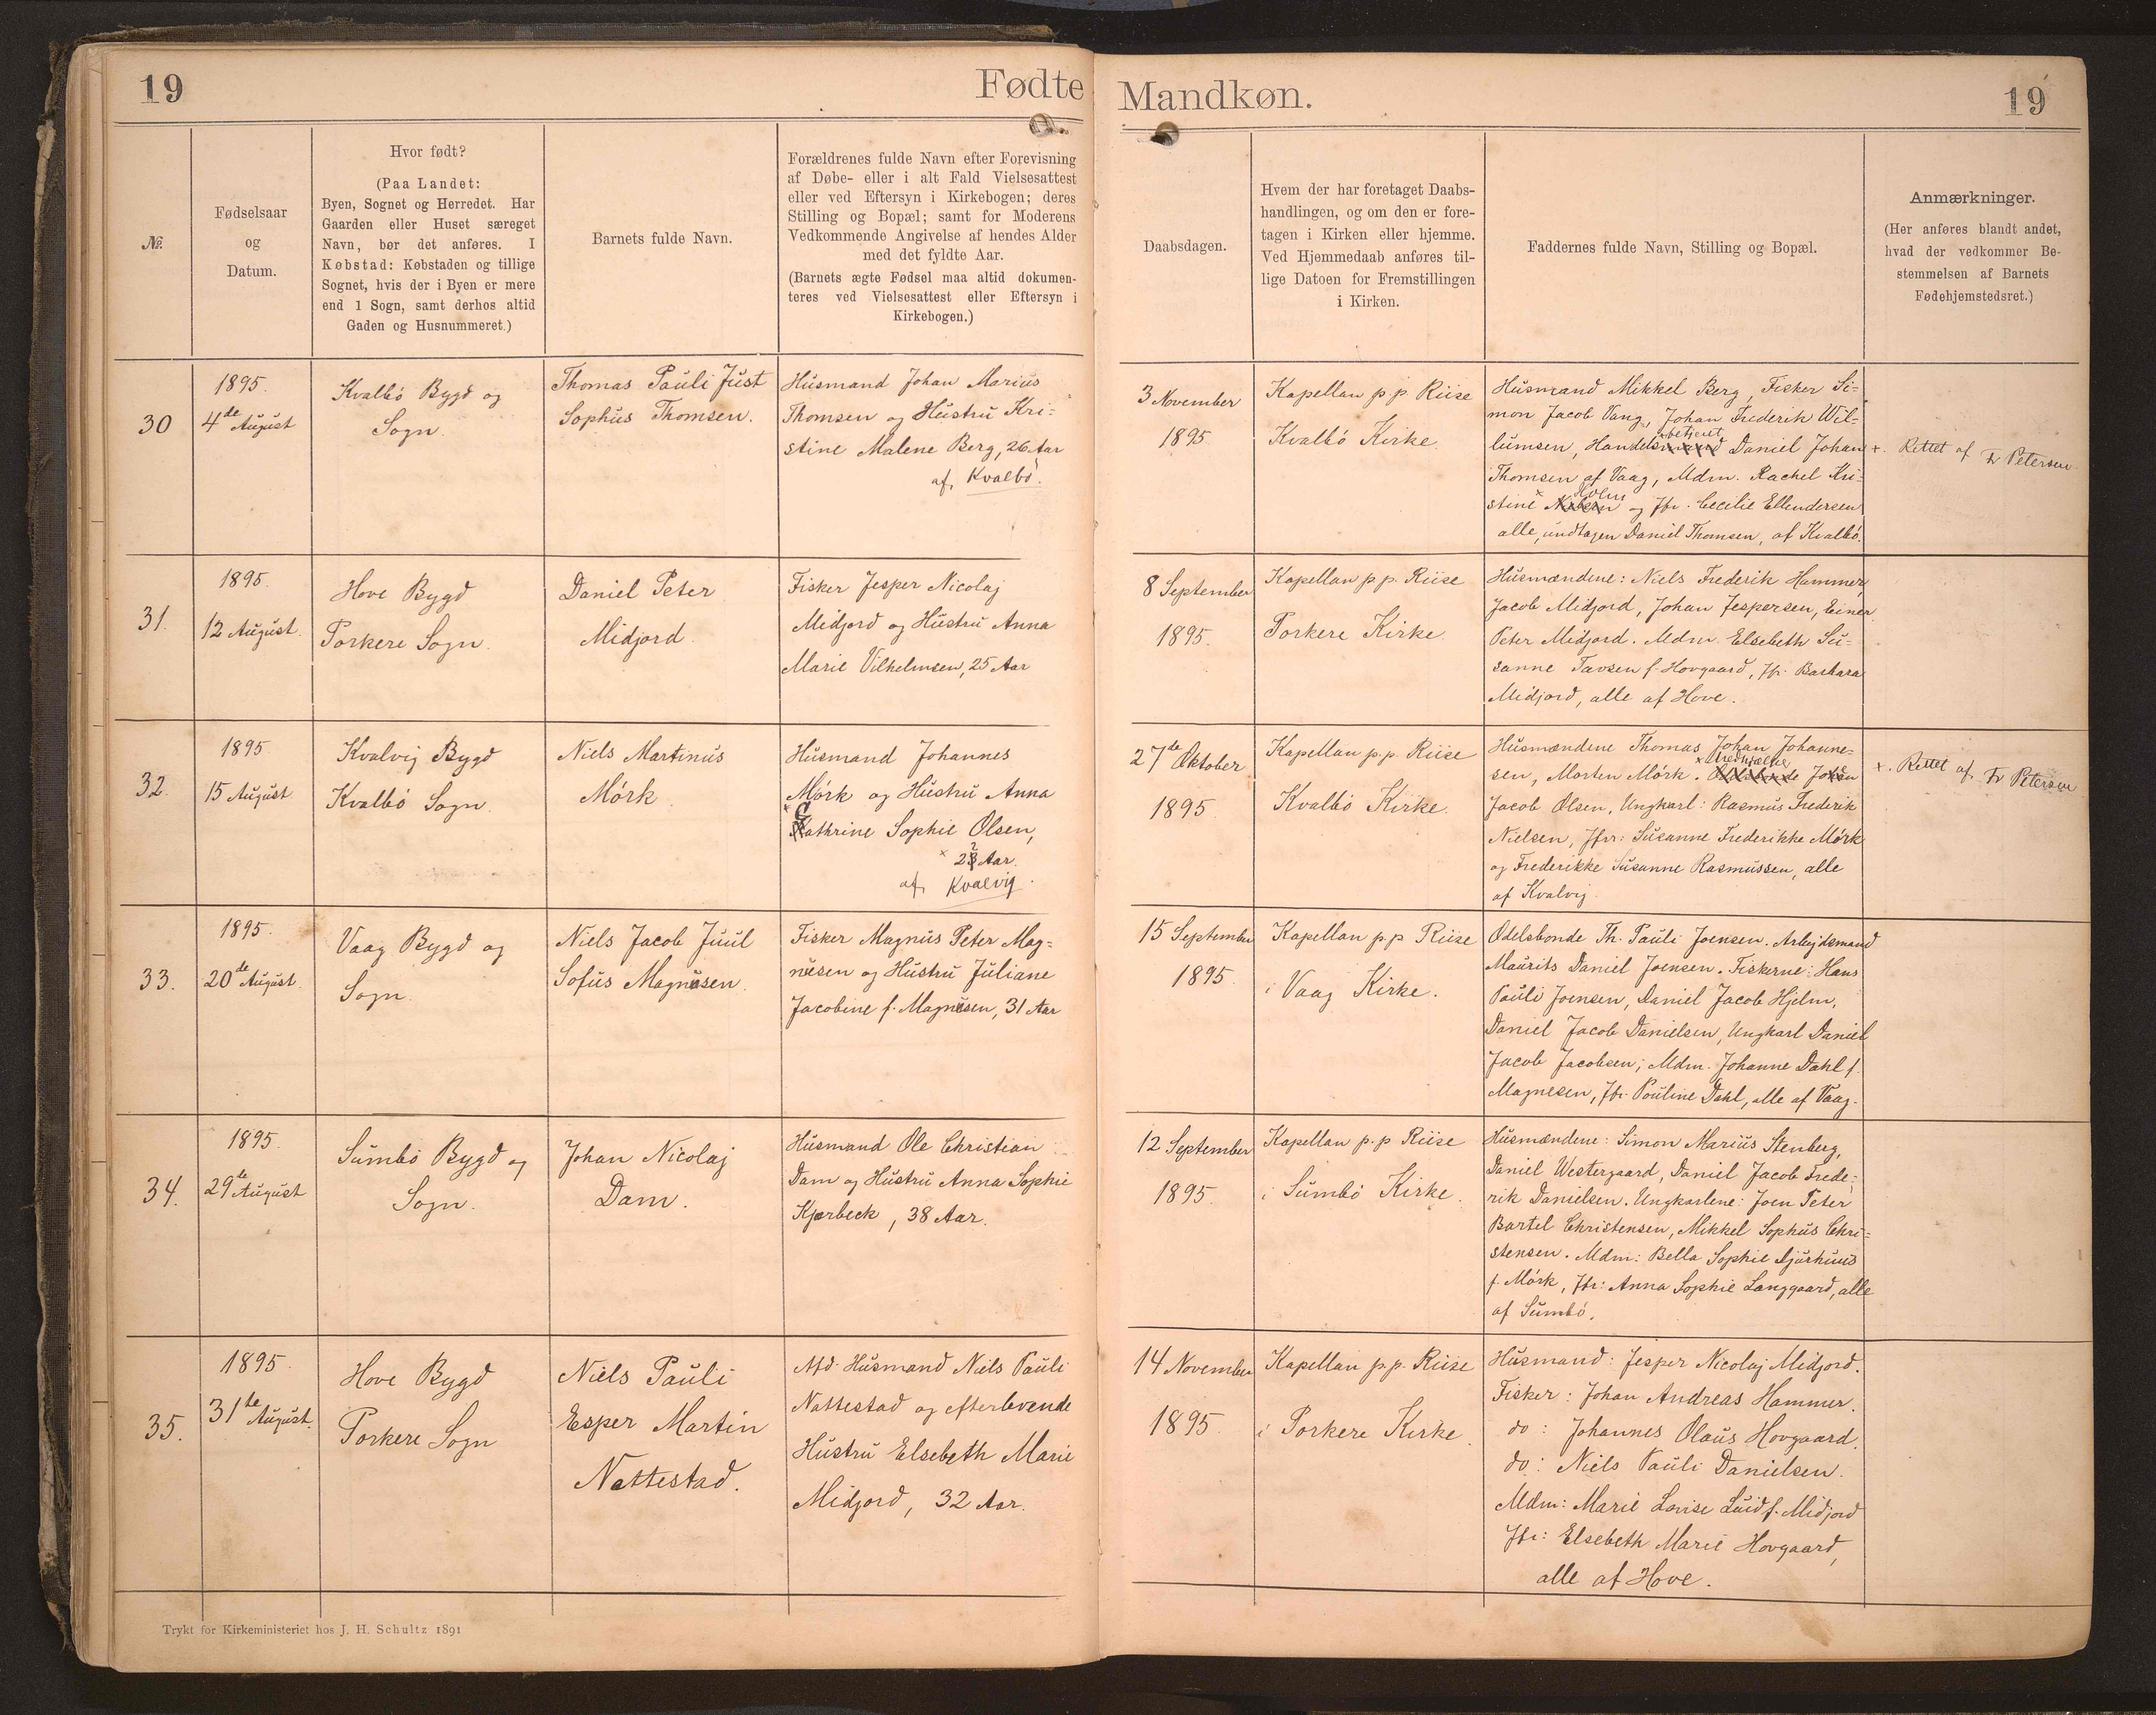 19
Fødte
Mandkøn.
19
№
Fødselsaar
og
Datum.
Hvor født?
(Paa Landet:
Byen, Sognet og Herredet. Har
Gaarden eller Huset særeget
Navn, bør det anføres. I
Købstad: Købstaden og tillige
Sognet, hvis der i Byen er mere
end 1 Sogn, samt derhos altid
Gaden og Husnummeret.)
Barnets fulde Navn.
Forældrenes fulde Navn efter Forevisning
af Døbe- eller i alt Fald Vielsesattest
eller ved Eftersyn i Kirkebogen; deres
Stilling og Bopæl; samt for Moderens
Vedkommende Angivelse af hendes Alder
med det fyldte Aar.
(Barnets ægte Fødsel maa altid dokumen-
teres ved Vielsesattest eller Eftersyn i
Kirkebogen.)
Daabsdagen.
Hvem der har foretaget Daabs-
handlingen, og om den er fore-
tagen i Kirken eller hjemme.
Ved Hjemmedaab anføres til-
lige Datoen for Fremstillingen
i Kirken.
Faddernes fulde Navn, Stilling og Bopæl.
Anmærkninger.
(Her anføres blandt andet,
hvad der vedkommer Be-
stemmelsen af Barnets
Fødehjemstedsret.)
30
1895.
4de August
Kvalbö Bygd og
Sogn.
Thomas Pauli Just
Sophus Thomsen.
Husmand Johan Marius
Thomsen og Hustru Kri-
stine Malene Berg, 26 Aar
af Kvalbö.
3 November
1895.
Kapellan p p Riise
Kvalbö Kirke.
Husmand Mikkel Berg, Fisker Si=
mon Jacob Vang, Johan Frederik Wil=
lumsen, Handelsbetjent Daniel Johan
Thomsen af Vaag, Mdm. Rachel Kri-
stine Holm og Jfr. Cecilie Ellendersen
alle, undtagen Daniel Thomsen, af Kvalbö.
x. Rettet af Fr Petersen
31.
1895.
12 August.
Hove Bygd
Porkere Sogn.
Daniel Peter
Midjord.
Fisker Jesper Nicolaj
Midjord og Hustru Anna
Marie Vilhelmsen, 25 Aar
8 September
1895.
Kapellan p p. Riise
Porkere Kirke.
Husmændene: Niels Frederik Hammer,
Jacob Midjord, Johan Jespersen, Einer
Peter Midjord. Mdm. Elsebeth Su-
sanne Tavsen f. Hovgaard, Jfr. Barbara
Midjord, alle af Hove.
32.
1895
15 August
Kvalvig Bygd
Kvalbö Sogn.
Niels Martinus
Mörk
Husmand Johannes
Mörk og Hustru Anna
x Cathrine Sophie Olsen,
x 22 Aar.
af Kvalvig.
27de Oktober
1895
Kapellan p.p. Riise
Kvalbö Kirke.
Husmændene Thomas Johan Johanne=
sen, Morten Mörk. Johan
Jacob Olsen, Ungkarl: Rasmus Frederik
Nielsen, Jfrr: Susanne Frederikke Mörk
og Frederikke Susanne Rasmussen, alle
af Kvalvig.
x. Rettet af Fr Petersen
33.
1895.
20de August.
Vaag Bygd og
Sogn.
Niels Jacob Juul
Sofus Magnesen.
Fisker Magnus Peter Mag=
nesen og Hustru Juliane
Jacobine f. Magnesen, 31 Aar
15 September
1895.
Kapellan p.p Riise
i Vaag Kirke.
Odelsbonde Th. Pauli Joensen. Arbejdsmand
Maurits Daniel Joensen. Fiskerne: Hans
Pauli Joensen, Daniel Jacob Hjelm,
Daniel Jacob Danielsen, Ungkarl Daniel
Jacob Jacobsen; Mdm. Johanne Dahl f.
Magnesen, Jfr. Pouline Dahl, alle af Vaag.
34.
1895.
29de August
Sumbö Bygd og
Sogn.
Johan Nicolaj
Dam.
Husmand Ole Christian
Dam og Hustru Anna Sophie
Kjærbeck, 38 Aar.
12 September
1895.
Kapellan p.p Riise
i Sumbö Kirke.
Husmændene: Simon Marius Stenberg,
Daniel Westergaard, Daniel Jacob Frede-
rik Danielsen. Ungkarlene: Joen Peter
Bartel Christensen, Mikkel Sophus Chri=
stensen. Mdm: Bella Sophie Djurhuus
f. Mörk, Jfr: Anna Sophie Langgaard, alle
af Sumbö.
35.
1895.
31te August.
Hove Bygd
Porkere Sogn
Niels Pauli
Esper Martin
Nattestad.
Afd. Husmand Niels Pauli
Nattestad og efterlevende
Hustru Elsebeth Marie
Midjord, 32 Aar.
14 November
1895.
Kapellan p.p. Riise
i Porkere Kirke.
Husmand: Jesper Nicolaj Midjord.
Fisker: Johan Andreas Hammer.
do: Johannes Olaus Hovgaard.
do: Niels Pauli Danielsen.
Mdm: Marie Lovise Luid f. Midjord
Jfr: Elsebeth Marie Hovgaard,
alle af Hove.
Trykt for Kirkeministeriet hos J. H. Schultz 1891